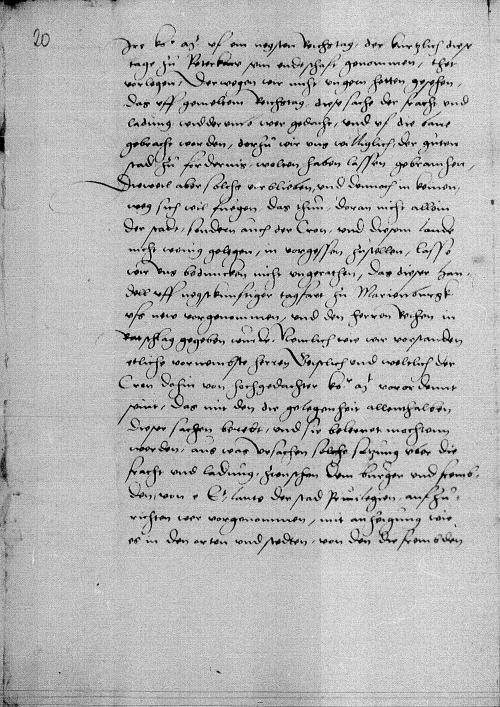 20
Ire ko. mt. uf em negsten Reichstag, der kurtzlich diese
tage zu Peterkaw sein endeschaft genommen, thet
vorlegen, Derwegen wir nicht ungern hetten gesehen,
das uff gemeltem Reichstag diese sache der fracht und
ladung widderumb wer gedacht, und uf die bane
gebracht worden, dorzu wir uns williglich der guten
stad zu fordernis, wolten haben lassen gebrauchen,
Dieweil aber solchs vorblieben, und dennoch in keinen
weg sich wil fuegen, das thun, doran nicht allein
der stadt, sondern auch der Cron, und diesem lande
nicht wenig gelegen, in vorgessen zustellen, lasse
wir uns beduncken nicht ungerathen, das dieser han-
dell uff negstkunftiger tagfart zu Marienburgk
ufs new vorgenommen, und den herren Rethen in
ratschlag gegeben wurde, Nemlich wie wir vorstanden
etliche vornemste herren Geistlich und weltlich der
Cron dohin von hochgedachter ko. mt. vorordennt
seint, das mit den die gelegenheit allenthalben
dieser sachen beredt, und sie belernet mochten
werden, aus was ursachen solche satzung uber die
fracht und ladung, zwischen dem burger und fremb-
den, von e lants der stad Privilegien, aufzu-
richten wer vorgenommen, mit anzeigung wie
es in den orten und stedten, von den die frembden